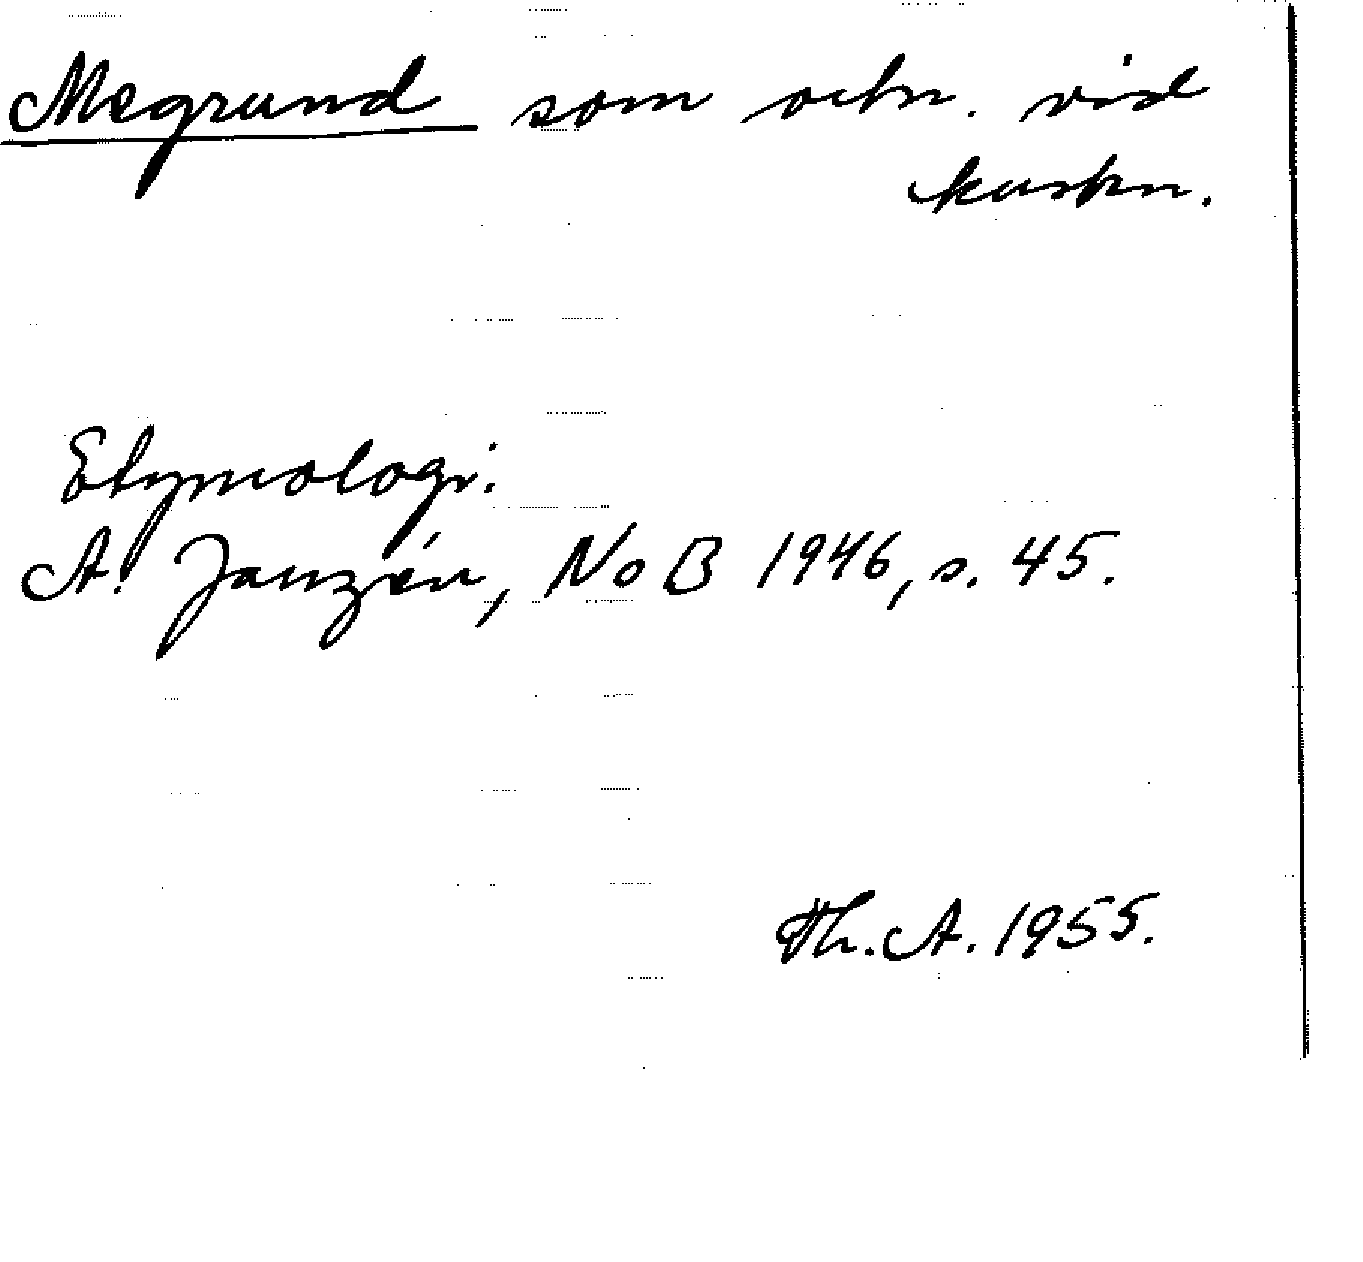 Megrund som ortn. vid
kusten.
Etymologi:
A. Janzén, NoB 1946, s. 45.
Th. A. 1955.